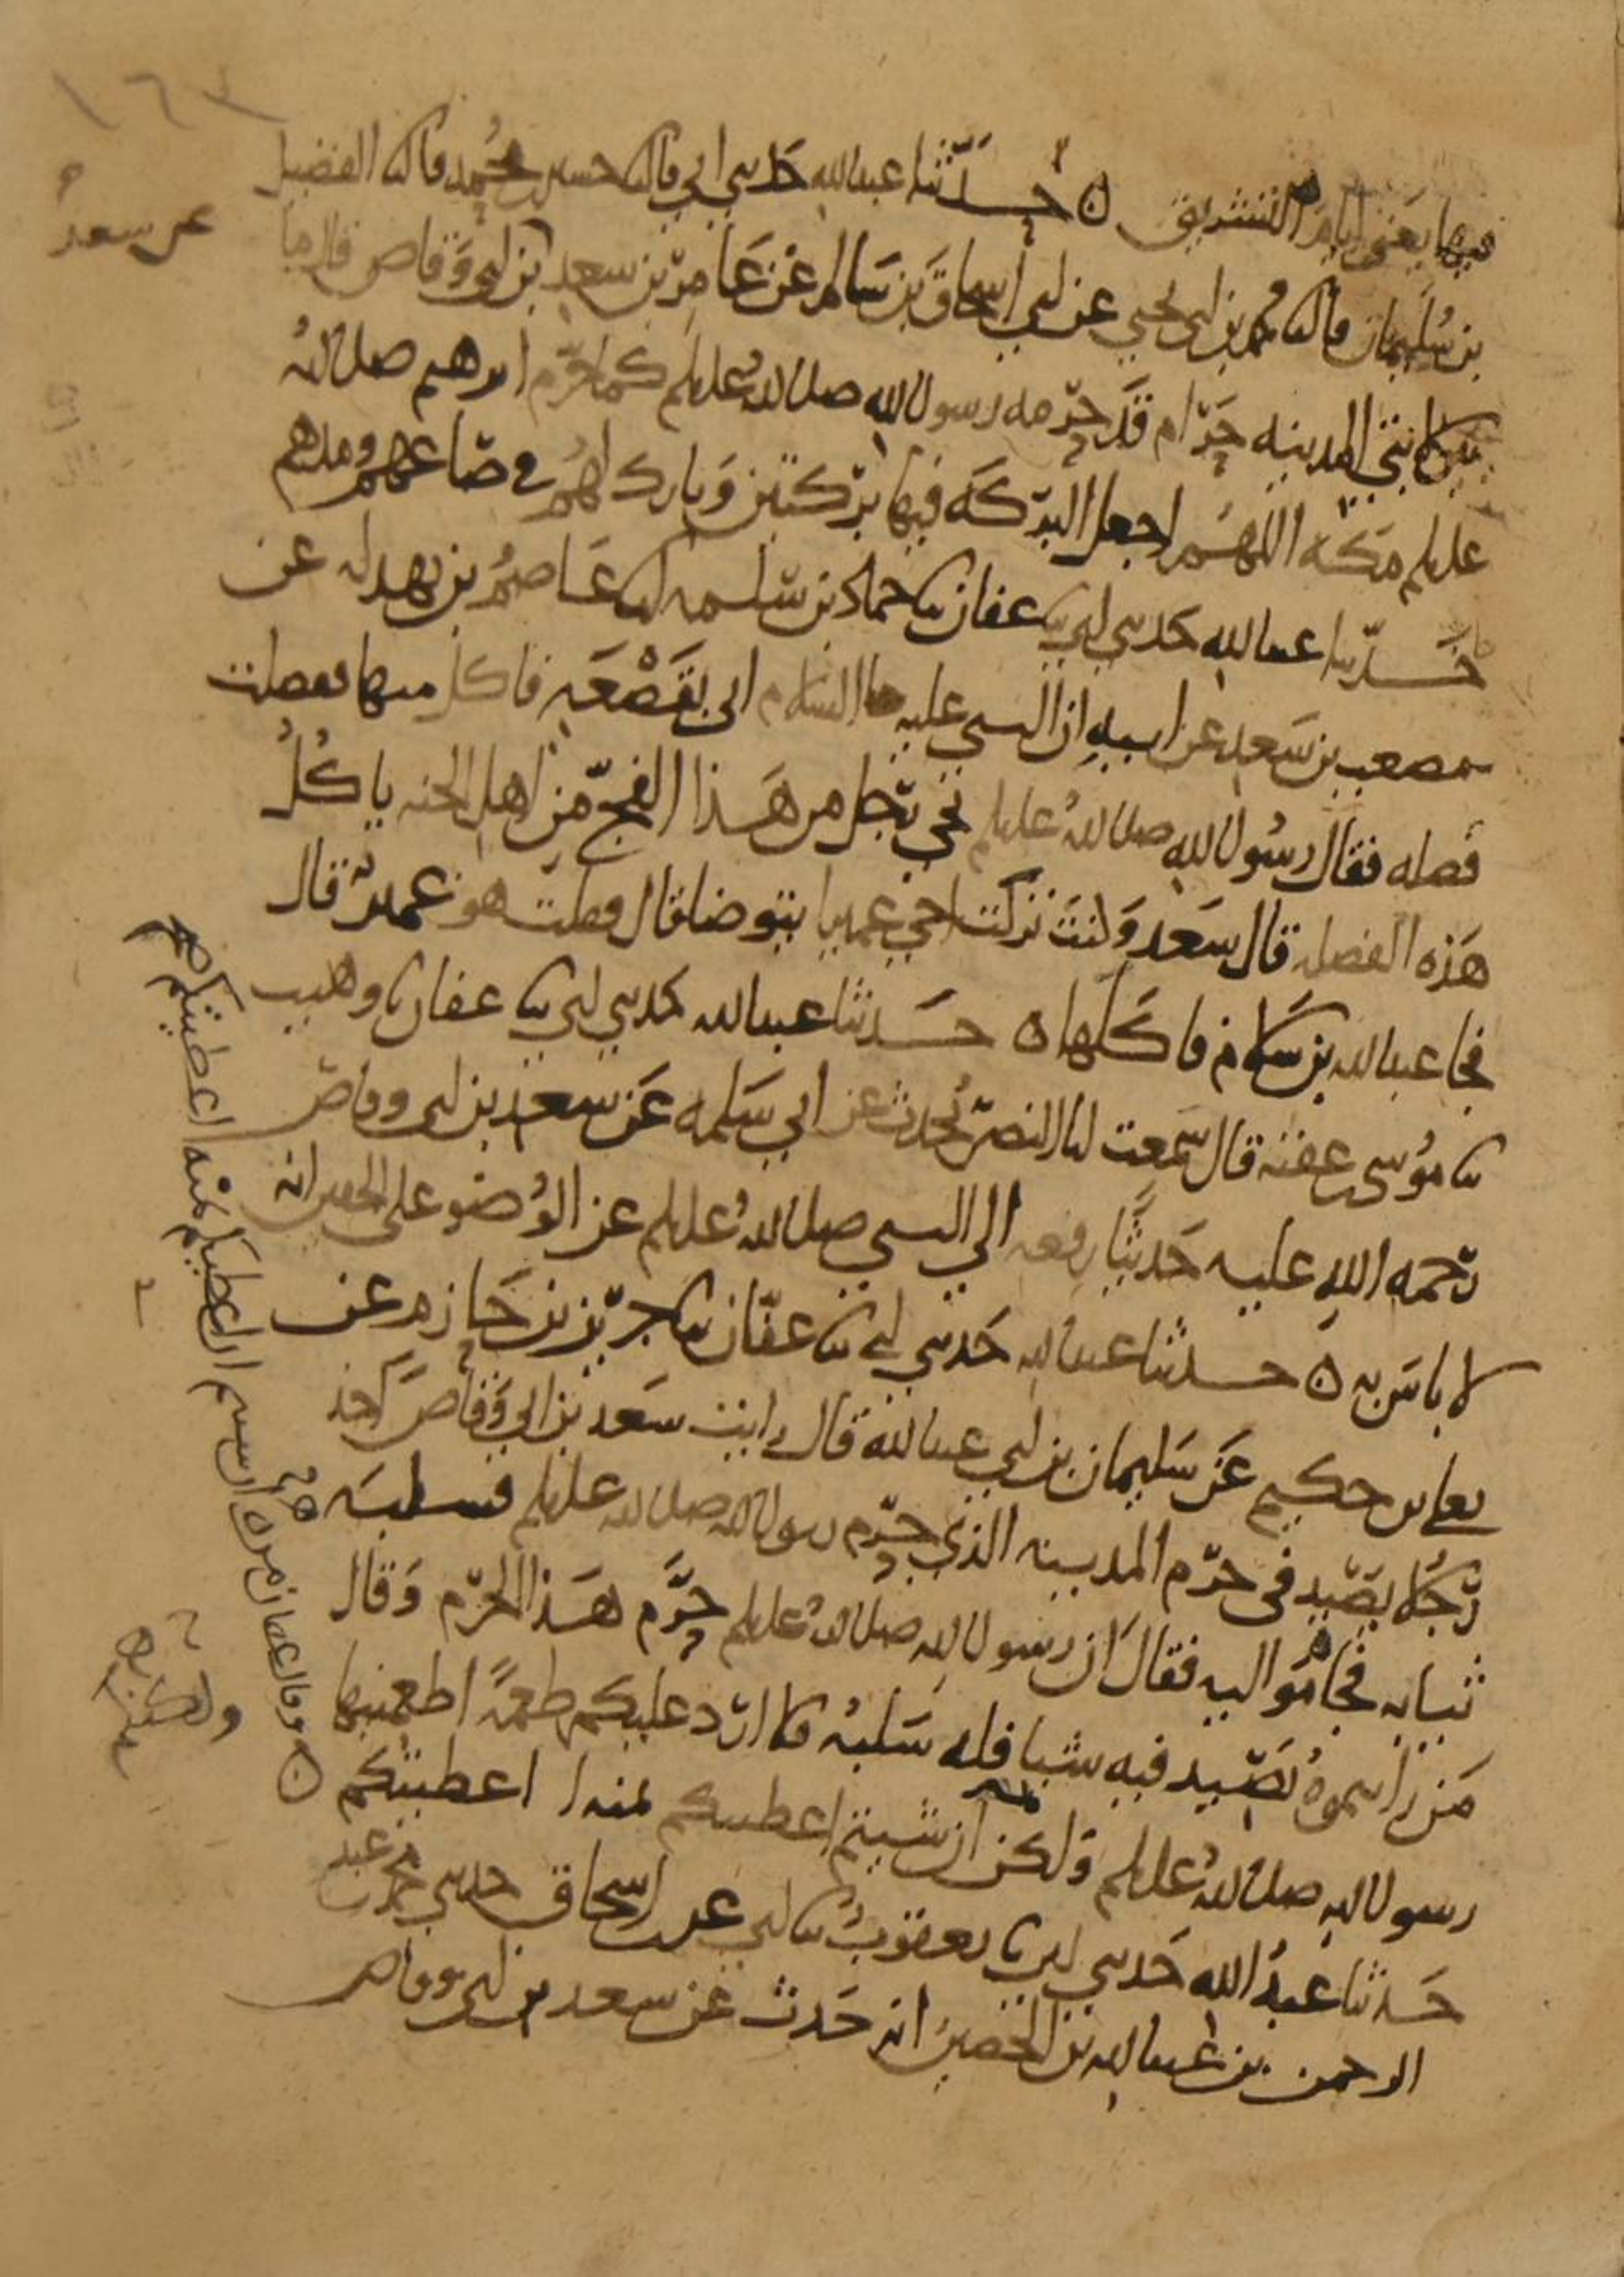 ١٦٣
فيها يعني ايام التشريق ٥ حدثنا عبد الله حدثني ابي قال ثنا حسين بن محمد قال ثنا الفضيل
بن سليمان قال ثنا محمد بن ابي يحيي عن ابي اسحاق بن سالم عن عامر بن سعد بن ابي وقاص قال ما
عن سعد
بين لابتي المدينه حرام قد حرمه رسول الله صلى الله عليه وسلم كما حرم ابرهيم صلى الله
عليه وسلم مكه اللهم اجعل البركه فيها بركتين وبارك لهم في صاعهم ومدهم
حدثنا عبد الله حدثني ابي ثنا عفان ثنا حماد بن سلمه انا عاصم بن بهدله عن
مصعب بن سعد عن ابيه ان النبي عليه السلام اتى بقصعه فاكل منها ففضلت
فضله فقال رسول الله صلى الله عليه وسلم يجي رجل من هذا الفج من اهل الجنه ياكل
هذه الفضله قال سعد وكنت تركت اخي عميرا يتوضا قال فقلت هو عمير قال
فجا عبد الله بن سلام فاكلها ٥ حدثنا عبد الله حدثني ابي ثنا عفان ثنا وهيب
ثنا موسى بن عقبه قال سمعت ابا النضر يحدث عن ابي سلمه عن سعد بن ابي وقاص
رحمه الله عليه حديثا رفعه الي النبي صلى الله عليه وسلم عن الوضو على الخفين انه
لا باس به ٥ حدثنا عبد الله حدثني ابي ثنا عفان ثنا جرير بن حازم عن
يعلى بن حكيم عن سليمان بن ابي عبد الله قال رايت سعد بن ابي وقاص اخذ
رجلا يصيد في حرم المدينه الذي حرم رسول الله صلى الله عليه وسلم فسلبه
ثيابه فجاموا اليه فقال ان رسول الله صلى الله عليه وسلم حرم هذا الحرم وقال
من رايتموه يصيد فيه شيا فله سلبه فلا ارد عليكم طعمة اطعمنيها
رسول الله صلى الله عليه وسلم ولكن ان شيتم اعطيتكم ثمنه ا اعطيتكم
حدثنا عبد الله حدثني ابي ثنا يعقوب ثنا ابي عن ابن اسحاق حدثني محمد بن عبد
الرحمن بن عبد الله بن الحصين انه حدث عن سعد بن ابي وقاص
٥ وقال عفان مره ان شيتم ان اعطيكم ثمنه اعطيتكم صح